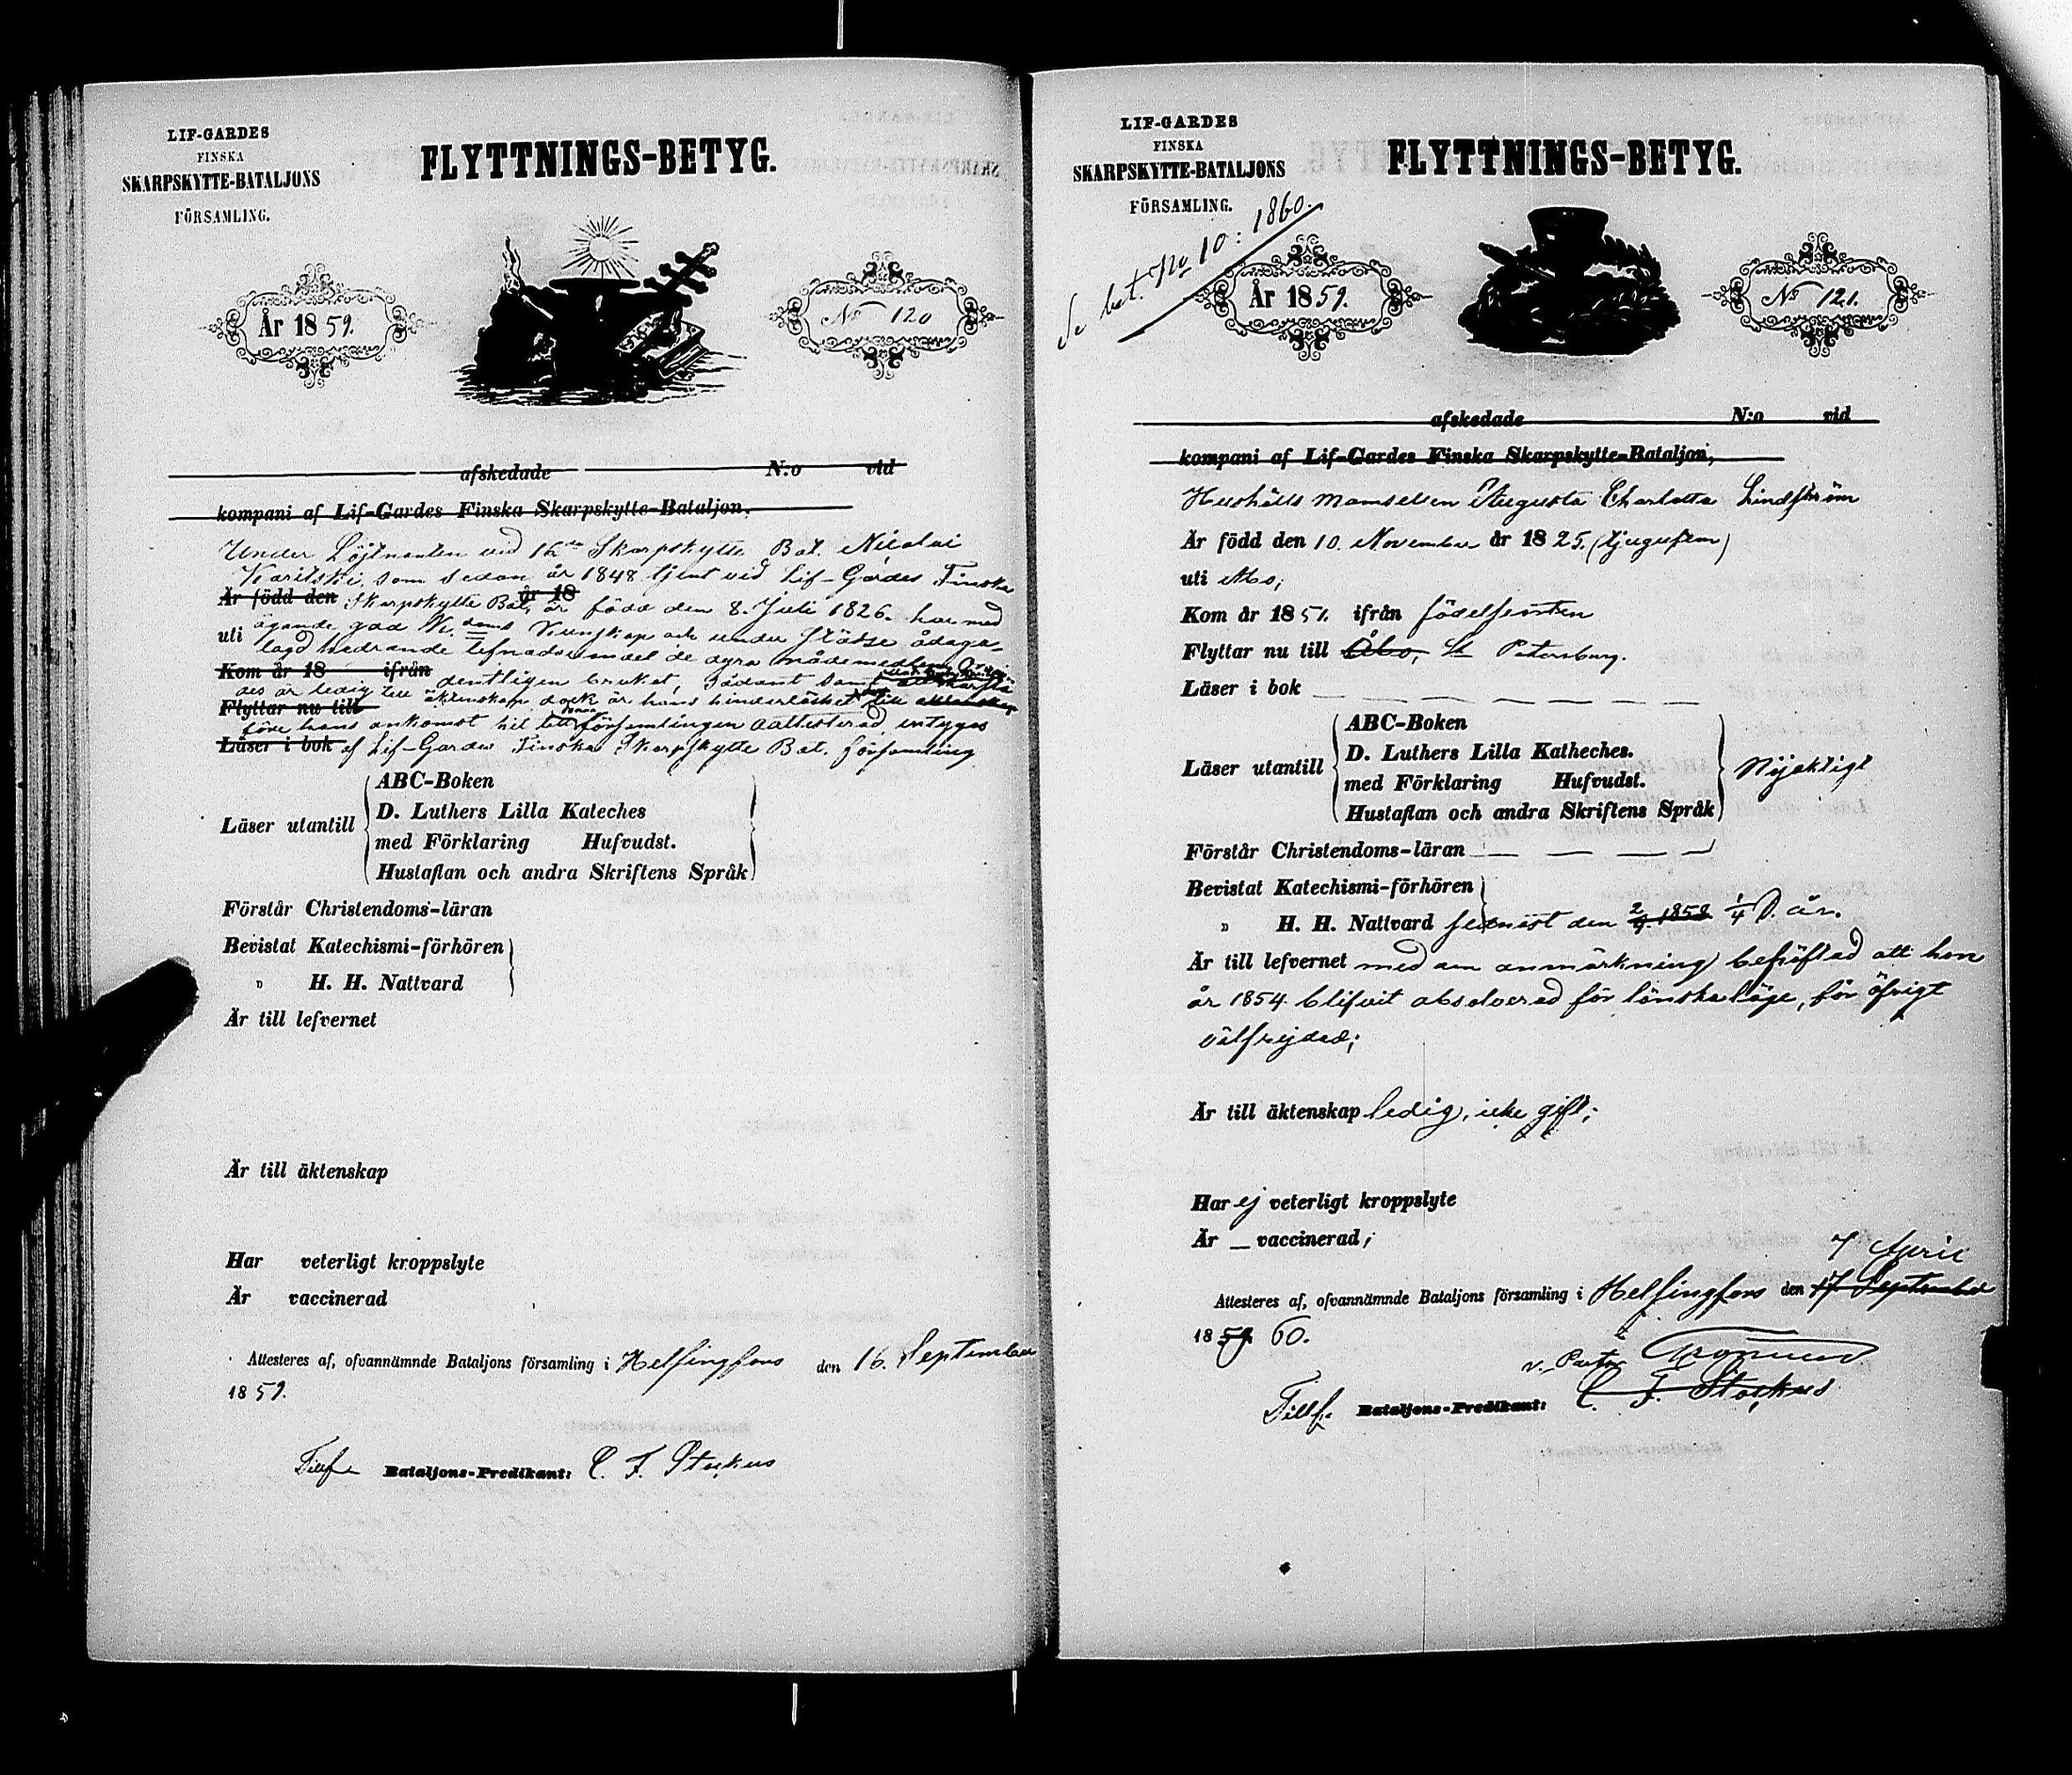 LIF-GARDES
FINSKA
SKARPSKYTTE-BATALJONS
FÖRSAMLING.
FLYTTNINGS-BETYG.
År 1859.
No 120
afskedade N:o vid
kompani af Lif-Gardes Finska Skarpskytte-Bataljon.
Under Löjtnanten vid 16de Skarpskytte Bat. Nicolai
som sedan år 1848 tjent vid Lif-Gardes Finska
Är född den år 18 Skarpskytte Bat, är född den 8. Juli 1826. har med
uti ägande god Kunskap och under ådaga-
lagd hedrande lefnadsvandel de dyra nådemedlen
Kom år 18 ifrån dentligen brukat, sådant samt
des är ledig till äktenskap, dock är hans hinderlöshet
Flyttar nu till
före hans ankomst till denna församlingen oattesterad, intygas
Läser i bok af Lif-Gardes Finska Skarpskytte Bat. församling
Läser utantill
ABC-Boken
D. Luthers Lilla Kateches
med Förklaring Hufvudst.
Hustaflan och andra Skriftens Språk
Förstår Christendoms-läran
Bevistat Katechismi-förhören
„ H. H. Nattvard
Är till lefvernet
Är till äktenskap
Har veterligt kroppslyte
Är vaccinerad
Attesteres af, ofvannämnde Bataljons församling i Helsingfors den 16. September
1859.
Tillf. Bataljons-Predikant: C. F. Stockus
LIF-GARDES
FINSKA
SKARPSKYTTE-BATALJONS
FÖRSAMLING.
FLYTTNINGS-BETYG.
Se bet. No 10: 1860.
År 1859.
No 121.
afskedade N:o vid
kompani af Lif-Gardes Finska Skarpskytte-Bataljon,
Hushålls mamsellen Augusta Charlotta Lindström
Är född den 10. November år 1825. (tjugufem)
uti Åbo;
Kom år 1851. ifrån födelseorten
Flyttar nu till Åbo, St Petersburg.
Läser i bok
Läser utantill
ABC-Boken
D. Luthers Lilla Katheches.
med Förklaring Hufvudst.
Hustaflan och andra Skriftens Språk
Nöjaktigt
Förstår Christendoms-läran
Bevistat Katechismi-förhören
„ H. H. Nattvard senast den 2/9. 1858 1/4 d. år.
Är till lefvernet med den anmärkning behäftad att hon
år 1854 blifvit absolverad för lönskaläge, för öfrigt
välfrejdad;
Är till äktenskap ledig, icke gift;
Har ej veterligt kroppslyte
Är vaccinerad;
7 April
Attesteres af, ofvannämnde Bataljons församling i Helsingfors den 17 September
1859. 60.
v. Pastor
Tillf. Bataljons-Predikant: C. F. Stockus